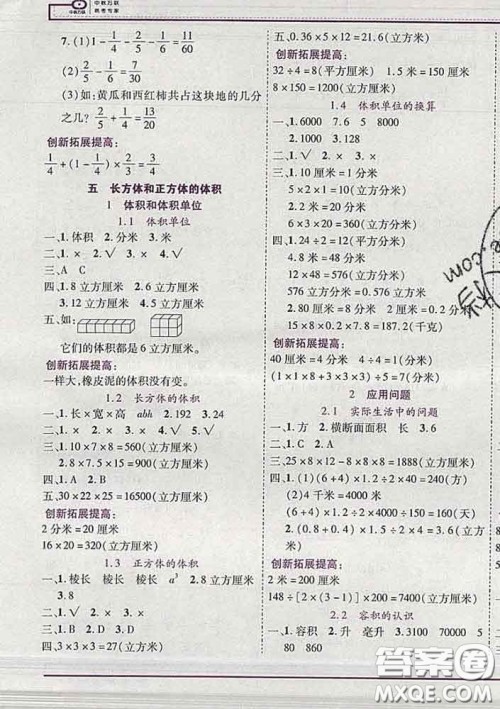 中教互联
统考专家
7. (1) 1/4 (2) 2/5 - 1/4 = 3/20
(2) 2/5 - 1/4 = 3/20
(3)如:黄瓜和西红柿共占这块地的几分
之几? 2/5 + 1/4 = 13/20
创新拓展提高:
1/4 + (1 - 1/4) × 1/3 = 1/2
五 长方体和正方体的体积
1 体积和体积单位
1.1 体积单位
一、1. 体积 2. 分米 3. 米
二、1. ✓ 2. × 3. ✓
三、A C
四、1. 8 立方厘米 2. 6 立方厘米
3. 12 立方厘米 4. 5 立方厘米
五、如:
它们的体积都是 6 立方厘米。
创新拓展提高:
一样大,橡皮泥的体积没有变。
1.2 长方体的体积
一、1. 长×宽×高 abh 2. 192 3. 24
二、1. ✓ 2. × 3. × 4. ✓
三、1. 10×7×8=560(立方厘米)
2. 8×7.5×15=900(立方厘米)
四、1. A 2. C
五、30×22×25=16500(立方厘米)
创新拓展提高:
2 分米=20 厘米
16×20=320(立方厘米)
1.3 正方体的体积
一、1. 棱长 棱长 棱长 a³ 2. 8 立方厘米
3. 8
二、1. × 2. × 3. × 4. ✓
四、3×3×3=27(立方厘米)
五、0.36×5×12=21.6(立方米)
创新拓展提高:
32÷4=8(平方厘米) 1.5 米=150 厘米
8×150=1200(立方厘米)
1.4 体积单位的换算
一、1. 6000 7.6 5 8000
2. 1000 3. 128
二、1. ✓ 2. × 3. ✓
三、1. 10 厘米=1 分米
5×2×1=10(立方分米)
2. 30 厘米=3 分米
6×20×3=360(立方分米)
四、1. 24÷2=12(平方分米)
4.8 米=48 分米
12×48=576(立方分米)
576 立方分米=0.576 立方米
2. 80 厘米=8 分米 0.2 米=2 分米
0.15×8×2×7.8=18.72(千克)
创新拓展提高:
40 厘米=4 分米 4÷4=1(分米)
(1×8+3×3×3)×1=35(立方分米)
2 应用问题
2.1 实际生活中的问题
一、1. 方 横断面面积 长 3. 6
二、1. × 2. × 3. ×
三、25×18×12-8×8×8=4888(立方厘米)
四、1. (1)(2+1.2)×2÷2×40=240(方)
(2)4 千米=4000 米
(1.2+2)×2÷2×4000÷240=60(天)
2. (0.8+0.4)×1.5÷2×4=3.6(立方米)
创新拓展提高:
2 米=200 厘米
148÷[2×(3-1)]×200=7400(立方厘米)
2.2 容积的认识
一、1. 容积 2. 升 毫升 3. 3100 70000 5
80 860
答案圈
MXQE.COM